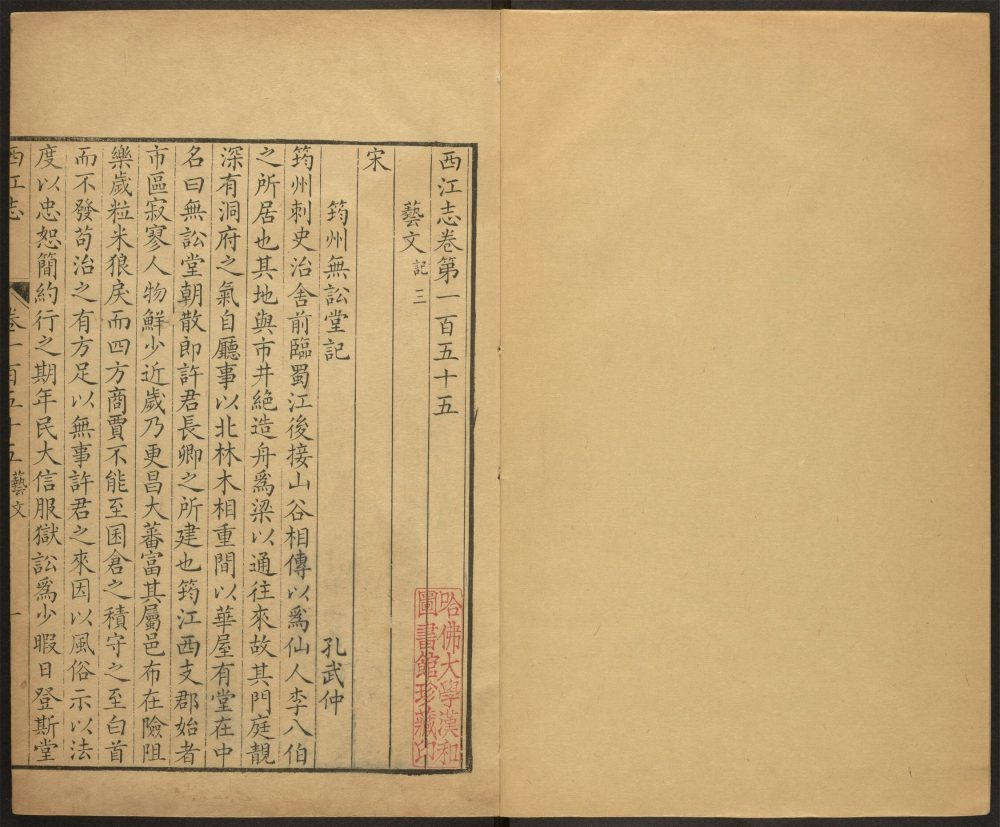 西江志卷第一百五十五
藝文 記三
宋
筠州無訟堂記
孔武仲
筠州刺史治舍前臨蜀江後接山谷相傳以爲仙人李八伯
之所居也其地與市井絶造舟爲梁以通往來故其門庭靚
深有洞府之氣自廳事以北林木相重間以華屋有堂在中
名曰無訟堂朝散郎許君長卿之所建也筠江西支郡始者
市區寂寥人物鮮少近歲乃更昌大蕃富其屬邑布在險阻
樂歲粒米狼戾而四方商賈不能至囷倉之積守之至白首
而不發苟治之有方足以無事許君之來因以風俗示以法
度以忠恕簡約行之期年民大信服獄訟爲少暇日登斯堂
西江志
卷一百五十五 藝文
一
哈佛大學漢和
圖書館珍藏印